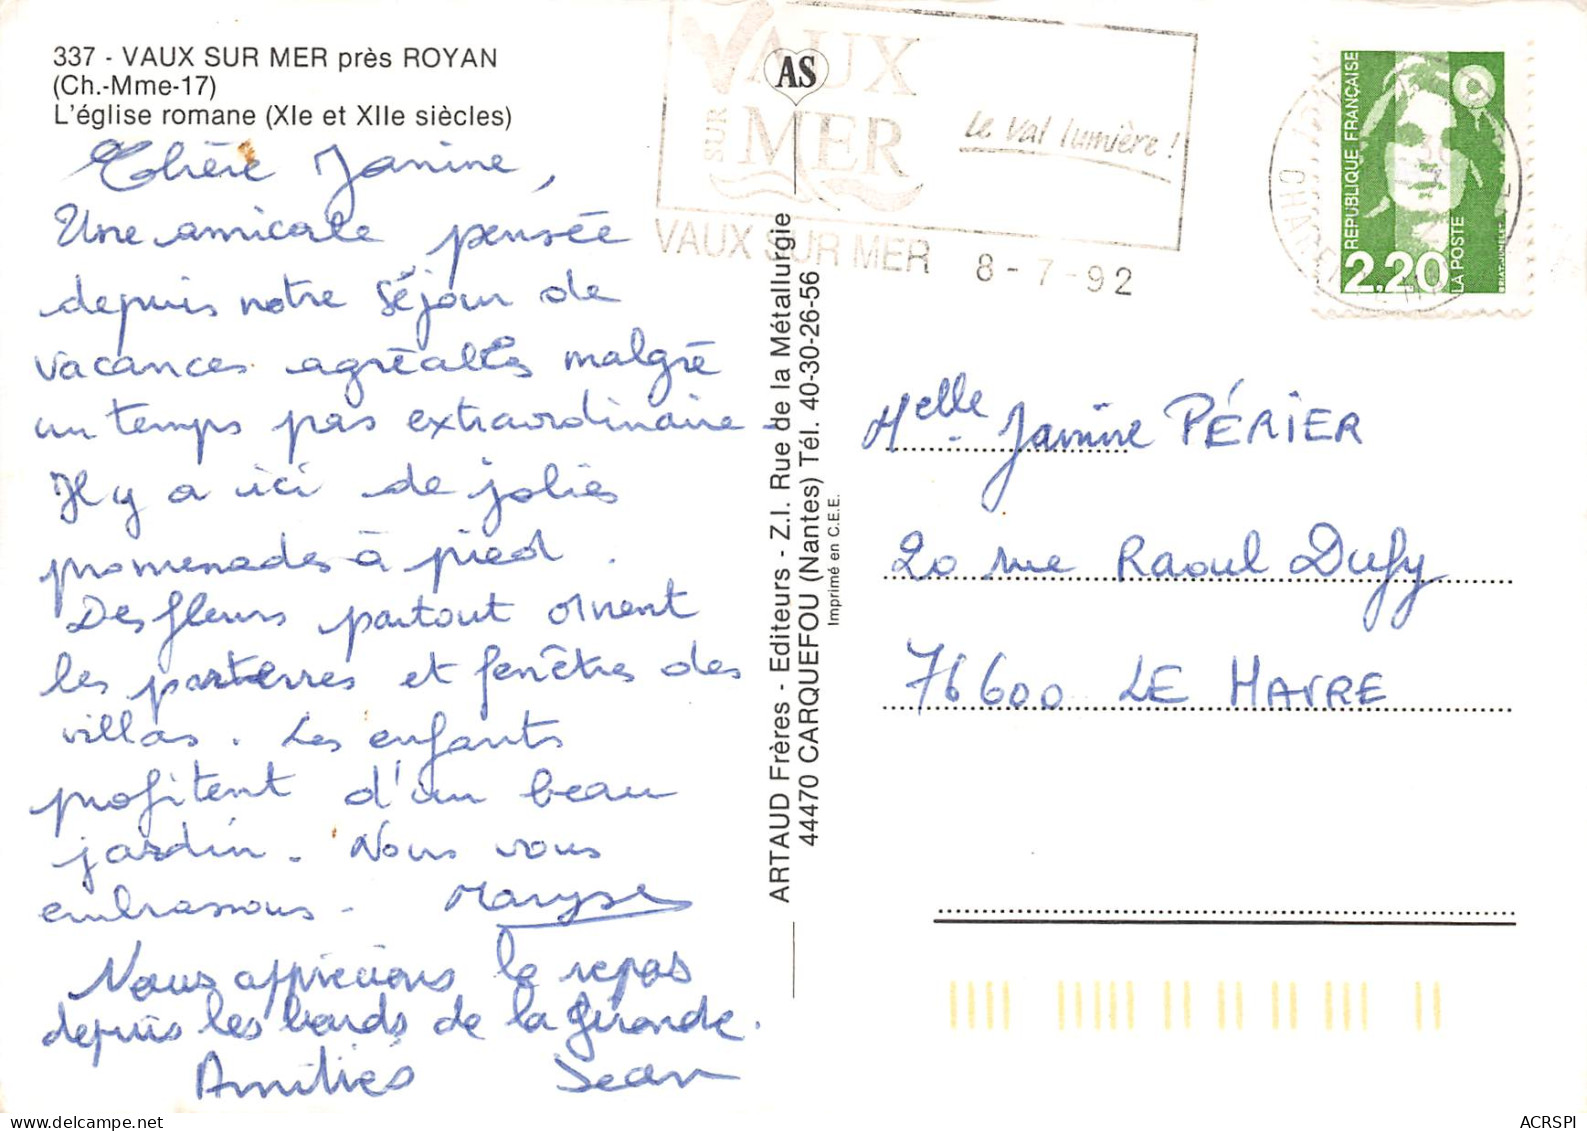 337 - VAUX SUR MER près ROYAN
(Ch.-Mme-17)
L'église romane (XIe et XIIe siècles)
Chère Janine,
Une amicale pensée
depuis notre séjour de
vacances agréables malgré
un temps pas extraordinaire.
Il y a ici de jolies
promenades à pied.
Des fleurs partout ornent
les parterres et fenêtres des
villas. Les enfants
profitent d'un beau
jardin. Nous vous
embrassons. Maryse
Nous apprécions le repas
depuis les bords de la Gironde.
Amitiés Jean
VAUX
SUR
MER
Le Val lumière !
VAUX SUR MER 8-7-92
AS
ARTAUD Frères - Editeurs - Z.I. Rue de la Métallurgie
44470 CARQUEFOU (Nantes) Tél. 40-30-26-56
Imprimé en C.E.E.
REPUBLIQUE FRANÇAISE
2,20
LA POSTE
Melle Janine PÉRIER
20 rue Raoul Dufy
76600 LE HAVRE
ACRSPI